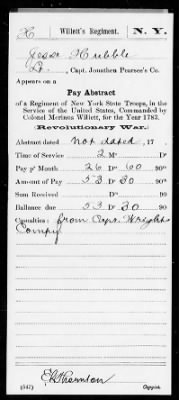 H Willett's Regiment. N. Y.
Jesse Hubble
Lt., Capt. Jonathen Pearsee's Co.
Appears on a
Pay Abstract
of a Regiment of New York State Troops, in the
Service of the United States, Commanded by
Colonel Merinus Willett, for the Year 1782.
(Revolutionary War.)
Abstract dated not dated, 17 .
Time of Service 2 Ms Ds
Pay pr Month 26 Ds 60 90s
Amount of Pay 53 Ds 30 90s
Sum Received Ds 90
Ballance due 53 Ds 30 90s
Casualties: from Capt. Wrights
Compy
E. B. Thornton
(547) Copyist.